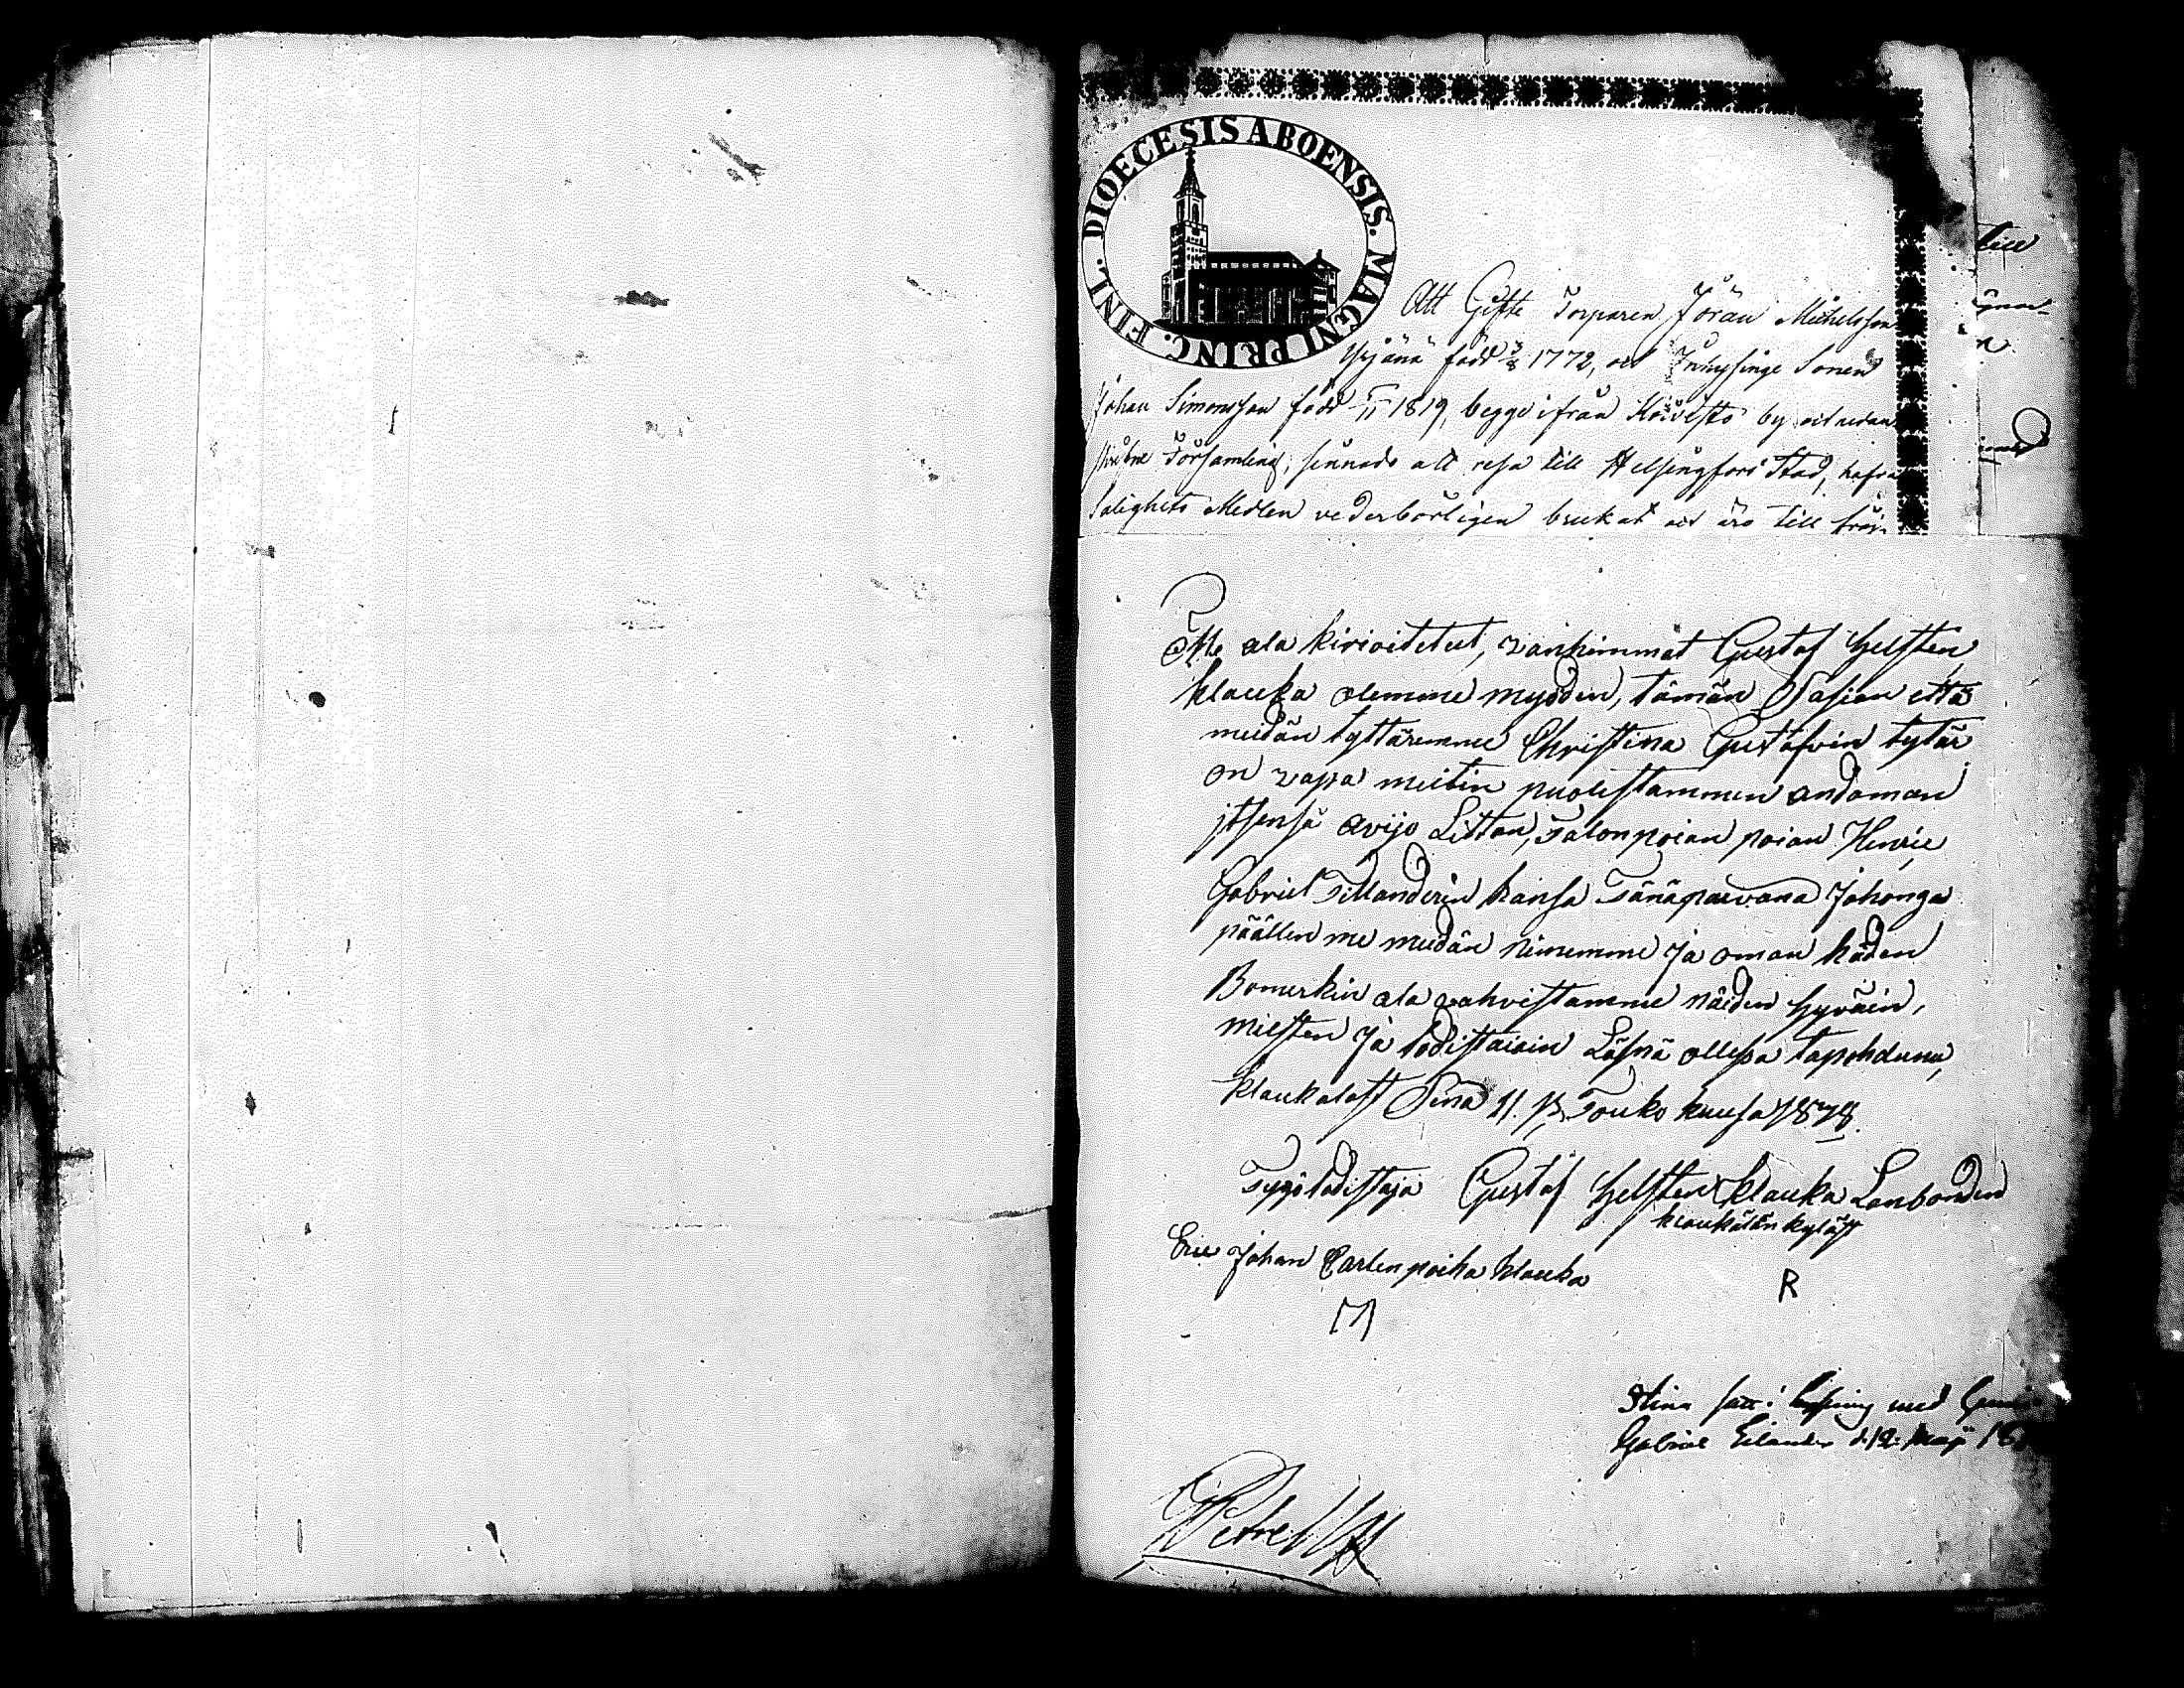 DIOECESIS ABOENSIS. MAGNI PRINC. FINL.
Att Gifte Torparen Jöran Michelsson
Yrjänä född 3/8 1772, och Inhysinge Sonen
Johan Simonsson född 5/11 1819, begge ifrån Koivisto by och nedan
skrefne Församling, sinnade att resa till Helsingfors Stad, hafva
Salighets Medlen vederbörligen brukat och äro till fräj-
till
med
Me ala kirioitetut, vanhimmat Gustaf Helsten
klauka olemme myöden, tämän Asian että
meidän tyttäremme Christina Gustafvin tytär
on vapa meitin puolestammen andaman
jtsensä avijo Litton, Talonpoian poian Henric
Gabriel Tillanderin kansa Tänäpaivana Johonga
päällen me meidän nimemme Ja oman käden
Bomerkin ala vahvistamme näiden hyväin,
miesten Ja todistaiain Läsnä ollesa tapahdunu,
klaukalast Sinä 11. p. Touko kuusa 1878.
Tygö todistaja Gustaf Helsten klauka Lanbonden
klaukälän kyläst
Eric Johan Carlen poika klauka
R
Stina satt i lysning med
Gabriel d. 12 Maji